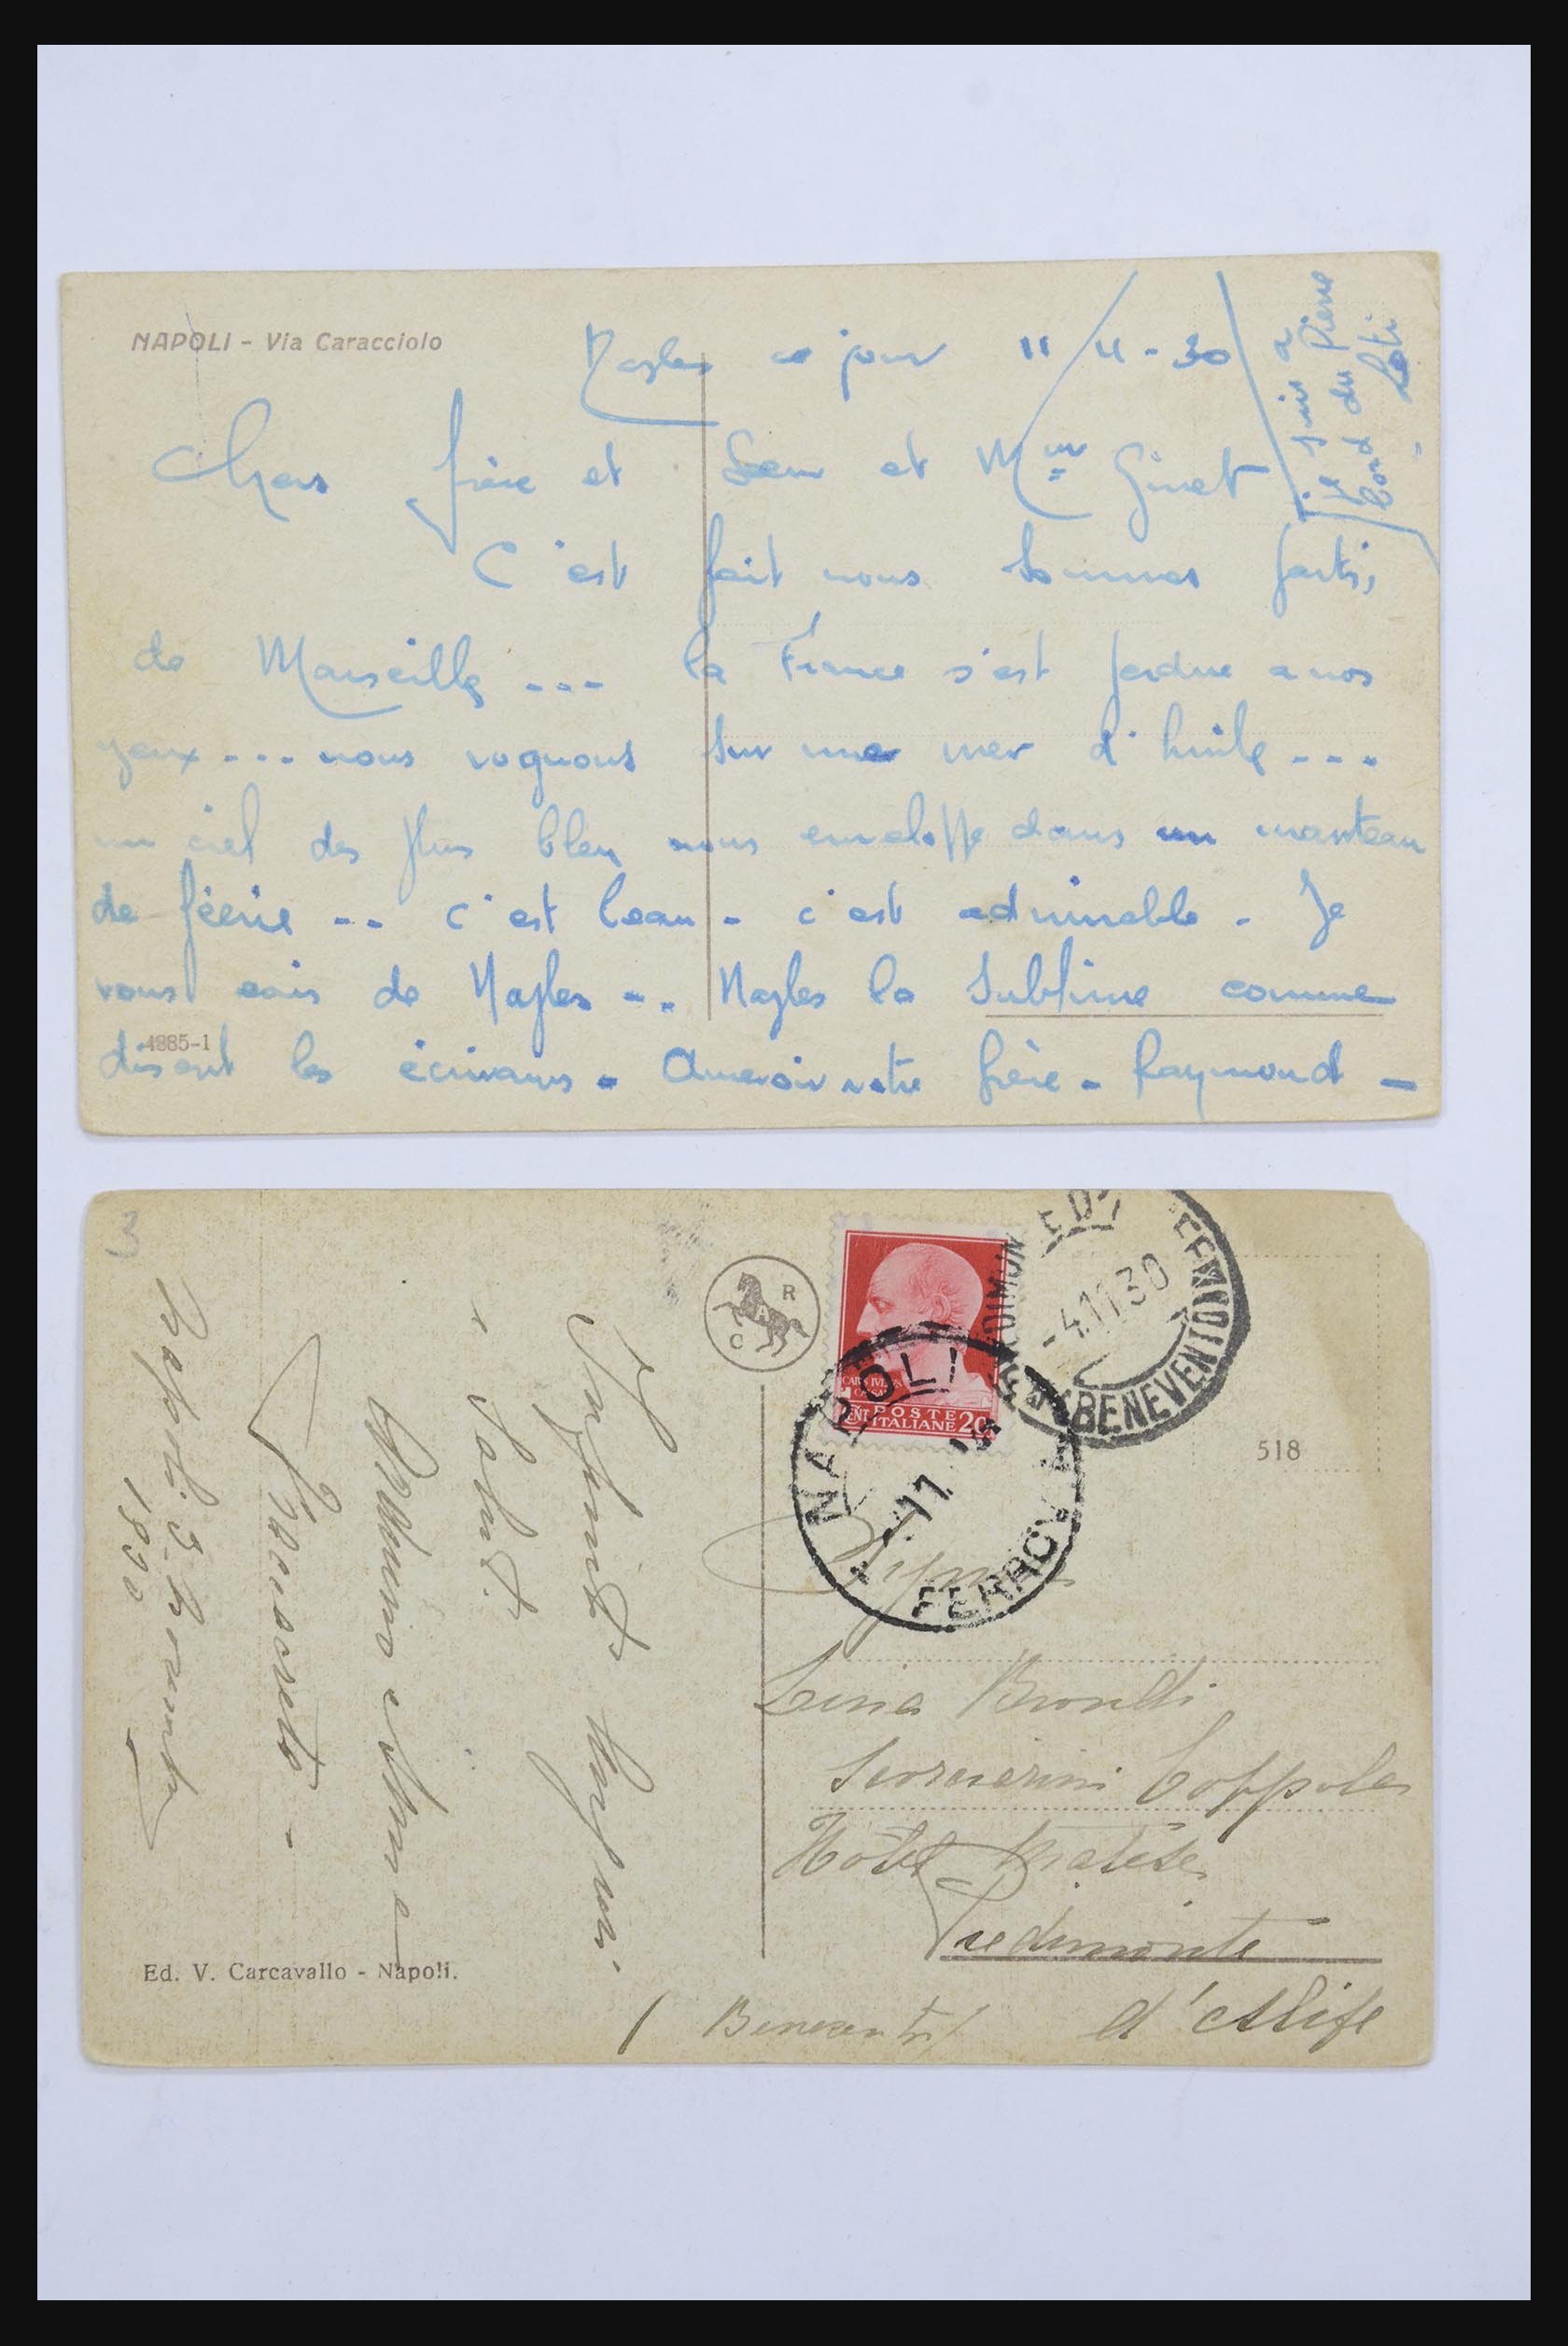 NAPOLI - Via Caracciolo
Naples ce jour 11/4-30
je suis a
bord du Pierre
Loti
Chers frère et Seur et Mme Ginet
C'est fait nous sommes partis
de Marseille --- la France s'est perdue a nos
yeux --- nous voguons sur une mer d'huile ---
un ciel des plus bleu nous enveloppe dans un manteau
de féerie -- c'est beau - c'est admirable - Je
vous ecris de Naples -- Naples la Sublime comme
disent les écrivains - Aurevoir votre frère - Raymond -
4885-1
3
R
A
C
NAPOLI
FERROVIA
-4.11.30
BENEVENTO
CAIVS IVLIVS
CAESAR
POSTE
CENT ITALIANE 20
518
Infiniti
e Saluti.
Napoli. 3. Novembre
1930
Lina Biondi
Coppola
Hôtel Matese
Piedimonte
d'Alife
(Benevento)
Ed. V. Carcavallo - Napoli.